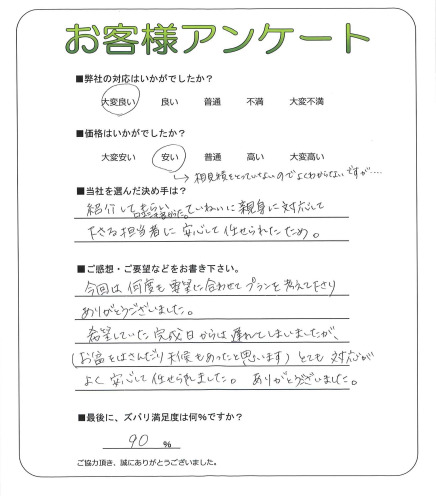 お客様アンケート
■弊社の対応はいかがでしたか?
大変良い 良い 普通 不満 大変不満
■価格はいかがでしたか?
大変安い 安い 普通 高い 大変高い
→相見積をとっていないのでよくわからないですが....
■当社を選んだ決め手は?
紹介してもらい ていねいに親身に対応して
下さる担当者に安心して任せられたため。
■ご感想・ご要望などをお書き下さい。
今回は何度も要望に合わせてプランを考えて下さり
ありがとうございました。
希望していた完成日からは遅れてしまいましたが、
(お盆をはさんだり天候もあったと思います)とても対応が
よく安心して任せられました。 ありがとうございました。
■最後に、ズバリ満足度は何%ですか?
90 %
ご協力頂き、誠にありがとうございました。